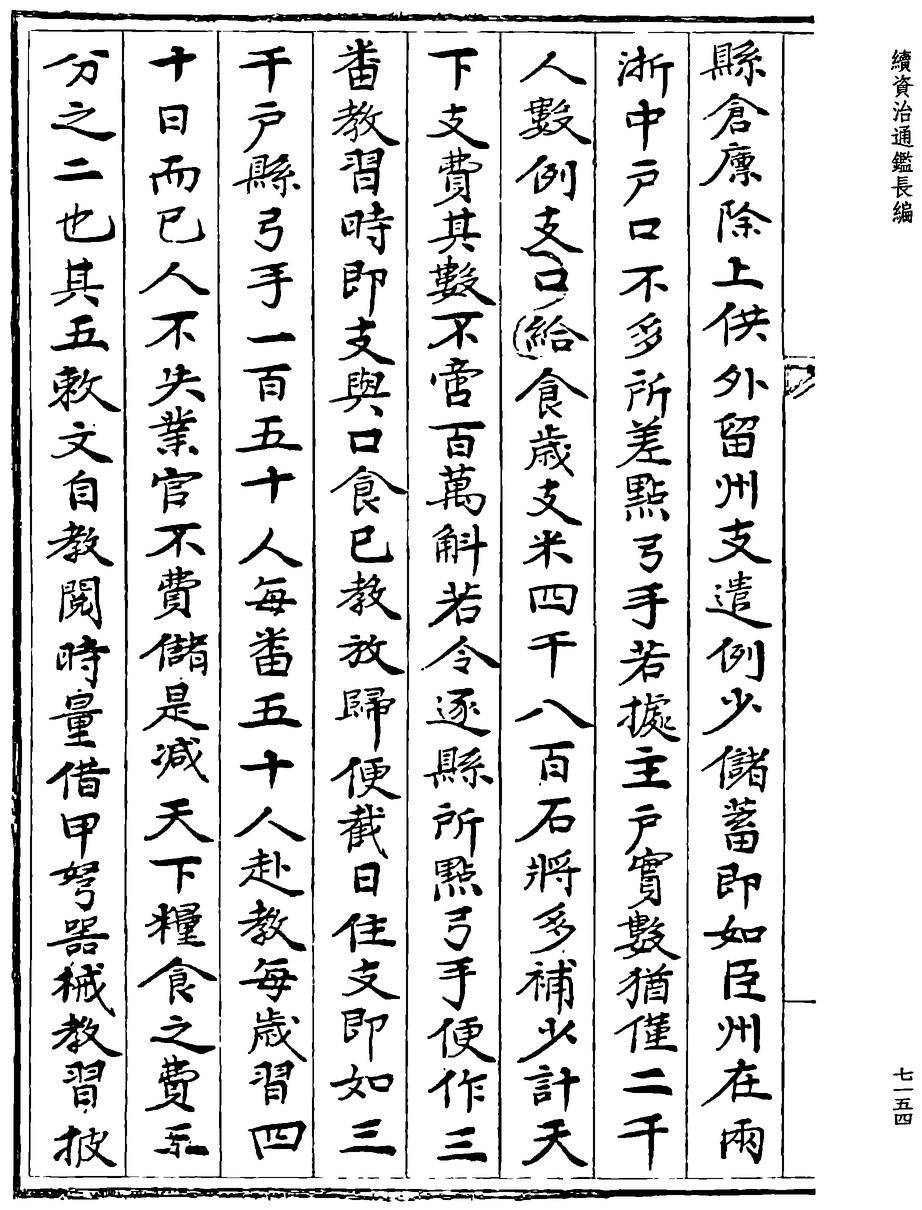 續資治通鑑長編
七一五四
縣倉廪除上供外留州支遣例少儲蓄即如臣州在兩
浙中戸口不多所差點弓手若據主戸實數猶僅二千
人數例支口給食歳支米四千八百石將多補少計天
下支費其數不啻百萬斛若令逐縣所點弓手便作三
畨教習時即支與口食已教放歸便截日住支即如三
千戸縣弓手一百五十人每畨五十人赴教每歳習四
十日而已人不失業官不費儲是减天下糧食之費五
分之二也其五敕文自教閱時量借甲弩器械教習披